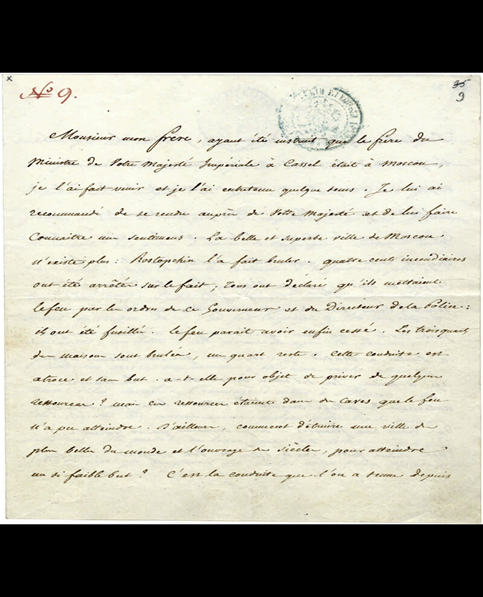 No 9.
35
9
Monsieur mon frère, ayant été instruit que le frère du
Ministre de Votre Majesté Impériale à Cassel était à Moscou,
je l'ai fait venir et je l'ai entretenu quelque tems. Je lui ai
recommandé de se rendre auprès de Votre Majesté et de lui faire
connaître mes sentimens. La belle et superbe ville de Moscou
n'existe plus: Rostopchin l'a fait bruler. quatre cents incendiaires
ont été arrêtés sur le fait; tous ont déclaré qu'ils mettaient
le feu par les ordres de ce Gouverneur et du Directeur de la Police:
ils ont été fusillés. le feu parait avoir enfin cessé. Les trois quarts
des maisons sont brulées, un quart reste. Cette conduite est
atroce et sans but. a-t-elle pour objet de priver de quelques
ressources? mais ces ressources étaient dans des caves que le feu
n'a pu atteindre. D'ailleurs, comment détruire une ville des
plus belles du monde et l'ouvrage des siècles, pour atteindre
un si faible but? C'est la conduite que l'on a tenue depuis